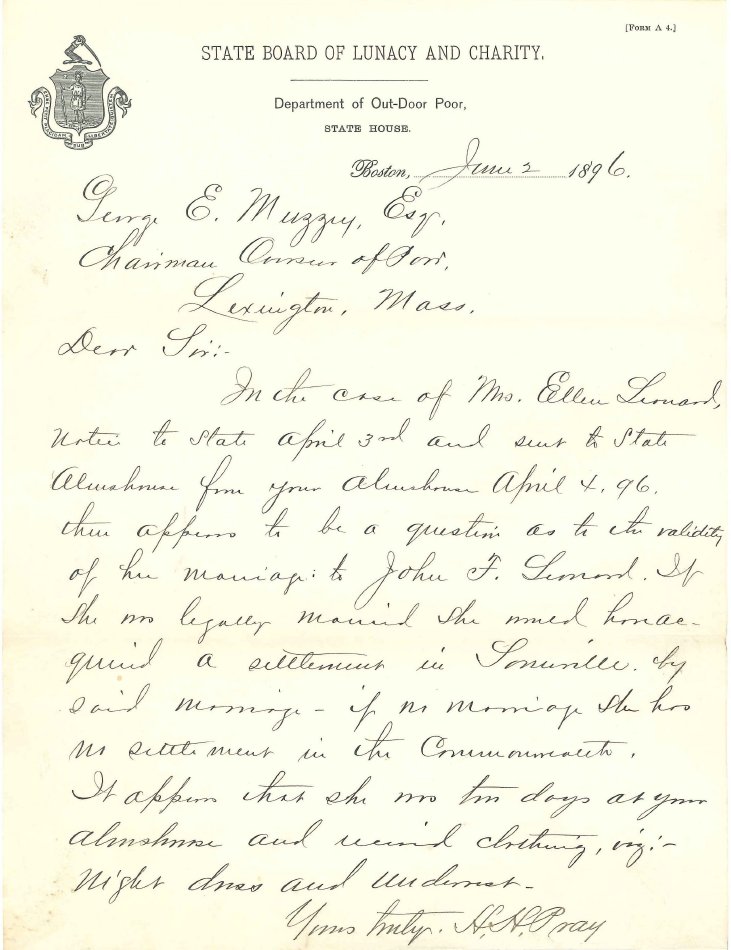 [FORM A 4.]
STATE BOARD OF LUNACY AND CHARITY.
Department of Out-Door Poor,
STATE HOUSE.
Boston, June 2 1896.
George E. Muzzey, Esq.
Chairman Overseers of Poor,
Lexington, Mass.
Dear Sir:-
In the case of Mrs. Ellen Leonard,
notice to State April 3rd and sent to State
Almshouse from your Almshouse April 4, 96.
there appears to be a question as to the validity
of her marriage to John F. Leonard. If
she was legally married she would have ac-
quired a settlement in Somerville, by
said marriage - if no marriage she has
no settlement in the Commonwealth.
It appears that she was ten days at your
almshouse and received clothing, viz:-
Night dress and undervest-
Yours truly, H. H. Pray